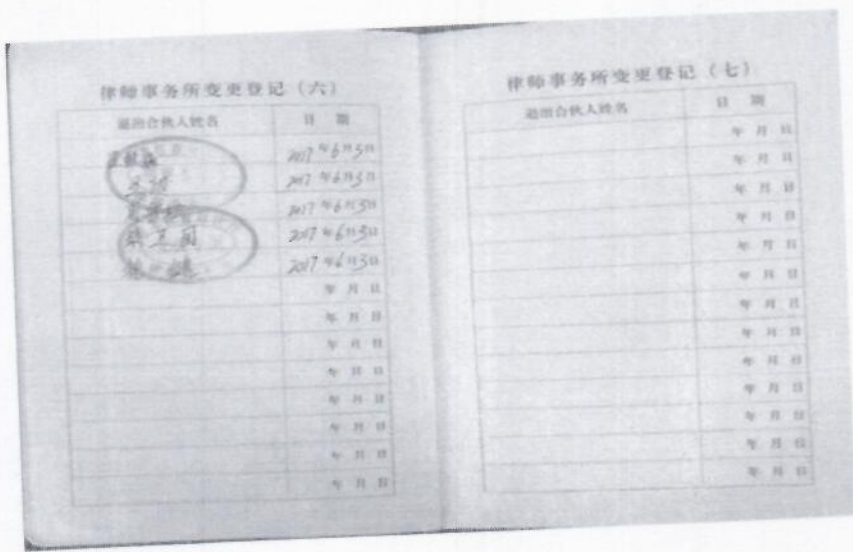 律师事务所变更登记（六）
退出合伙人姓名 日 期
2017年6月5日
2017年6月5日
2017年6月5日
卫国 2017年6月5日
2017年6月5日
年 月 日
年 月 日
年 月 日
年 月 日
年 月 日
年 月 日
年 月 日
年 月 日
律师事务所变更登记（七）
退出合伙人姓名 日 期
年 月 日
年 月 日
年 月 日
年 月 日
年 月 日
年 月 日
年 月 日
年 月 日
年 月 日
年 月 日
年 月 日
年 月 日
年 月 日